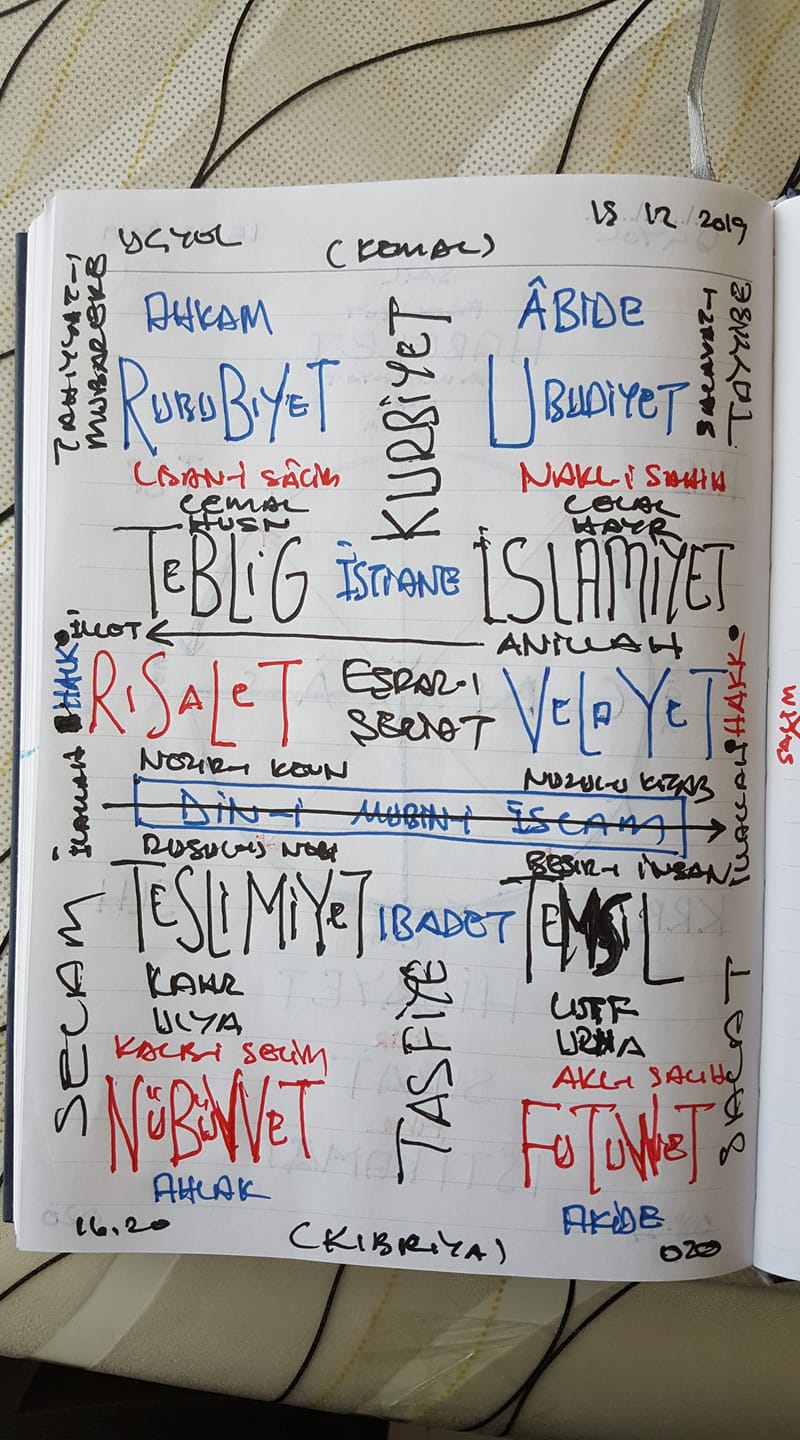 ÜÇYOL
(KEMAL)
18 12 2019
TAHİYYAT-I
MÜBAREKE
SALAVAT-I
TAYYİBE
AHKAM
ÂBİDE
RUBUBİYET
KURBİYET
UBUDİYET
LİSAN-I SÂLİM
NAKL-İ SAHİH
CEMAL
CELAL
HUSN
HAYR
TEBLİG
İSTİANE
İSLAMİYET
İLLET
ANİLLAH
HALK
HAKK
RİSALET
ESRAR-I
SERİAT
VELAYET
NEZİR-İ KEVN
NUZUL-U KİTAB
İLALLAH
DİN-İ MUBİN-İ İSLAM
İLALLAH
RUSUL-U NEBİ
BEŞİR-İ İNSAN
TESLİMİYET
IBADET
TEMSİL
SELAM
SALAT
KAHR
LUTF
ULYA
TASFİYE
KALB-İ SELİM
AKL-I SALİH
NÜBÜVVET
FUTUVVET
AHLAK
AKİDE
16.20
(KIBRİYA)
020